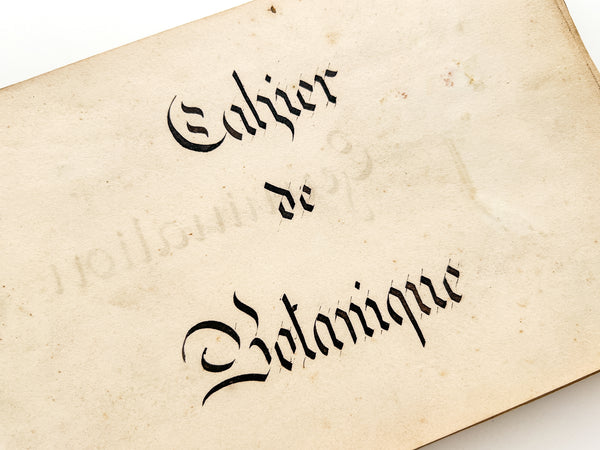 Cahier
de
Botanique